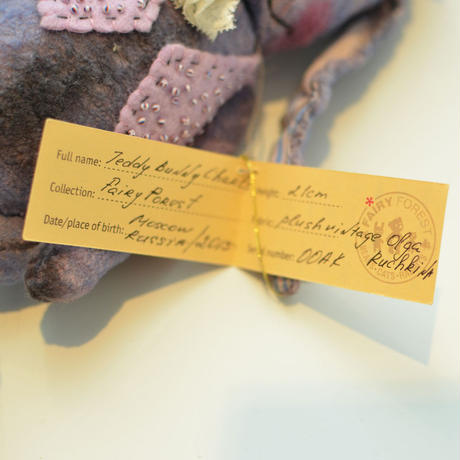 Full name: Teddy Bunny
Collection: Fairy Forest
Date/place of birth: Moscow
Russia/2013
Height: 21cm
Fabric: plush vintage
Serial number: OOAK
Olga
Ruchkina
FAIRY FOREST